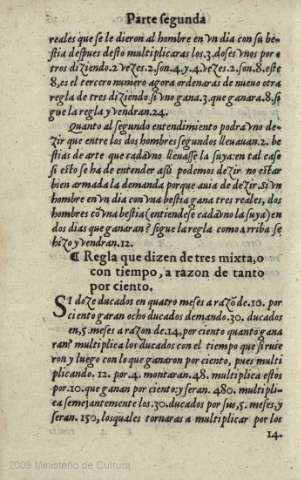 Parte segunda
reales que se le dieron al hombre en vn dia con su be-
stia despues desto multiplicaras los.3.doses vnos por o
tros diziendo.2.vezes.2.son.4.y.4.vezes.2.son.8.este
8,es el tercero numero agora ordenaras de nueuo otra
regla de tres diziendo.si vno gana.3.que ganara.8.si
gue la regla y vendran.24.
Quanto al segundo entendimiento podra vno de-
zir que entre los dos hombres segundos lleuauan.2.be
stias de arte que cada vno lleuasse la suya:en tal caso
si esto se ha de entender assi podemos dezir no estar
bien armada la demanda porque auia de dezir.Si vn
hombre en vn dia con vna bestia gana tres reales, dos
hombres cõ vna bestia (entiendese cada vno la suya) en
dos dias que ganaran? sigue la regla como arriba se
hizo y vendran.12.
¶ Regla que dizen de tres mixta,o
con tiempo, a razon de tanto
por ciento.
SI doze ducados en quatro meses a razõ de.10. por
ciento garan ocho ducados demando.30. ducados
en,5.meses a razon de.14,por ciento quanto gana
ran? multiplica los ducados con el tiempo que siruie
ron y luego con lo que ganaron por ciento, pues multi
plicando. 12. por.4.montaran.48. multiplica estos
por.10.que ganan por ciento:y seran. 480. multipli-
ca semejantemente los.30.ducados por sus,5.meses,y
seran. 150,los quales tornaras a multiplicar por los
14.
2009 Ministerio de Cultura